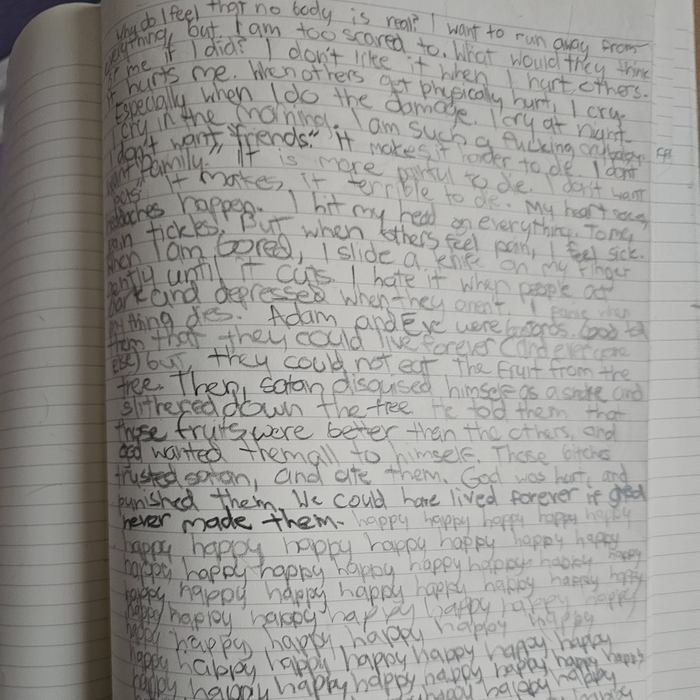 Why do I feel that no body is real? I want to run away from
everything, but I am too scared to. What would they think
of me if I did? I don't like it when I hurt others.
it hurts me. When others get physically hurt, I cry.
Especially when I do the damage. I cry at night.
I cry in the morning. I am such a fucking crybaby.
I don't want "friends." It makes it harder to die. I don't
want "family." It is more painful to die. I don't want
"pets" It makes it terrible to die. My heart
headaches happen. I hit my head on everything. To me,
pain tickles. But when others feel pain, I feel sick.
When I am bored, I slide a knife on my finger
gently until it cuts. I hate it when people act
dark and depressed when they aren't. I panic when
anything dies. Adam and Eve were God told
them that they could live forever (and everyone
else) but, they could not eat the fruit from the
tree. Then, satan disguised himself as a snake and
slithered down the tree. He told them that
those fruits were better than the others, and
god wanted them all to himself. These bitches
trusted satan, and ate them. God was hurt, and
punished them. We could have lived forever if god
never made them. happy happy happy happy happy
happy happy happy happy happy happy happy
happy happy happy happy happy happy happy happy
happy happy happy happy happy happy happy
happy happy happy happy happy happy happy
happy happy happy happy happy happy
happy happy happy happy happy happy happy
happy happy happy happy happy happy happy
happy happy happy happy happy happy happy